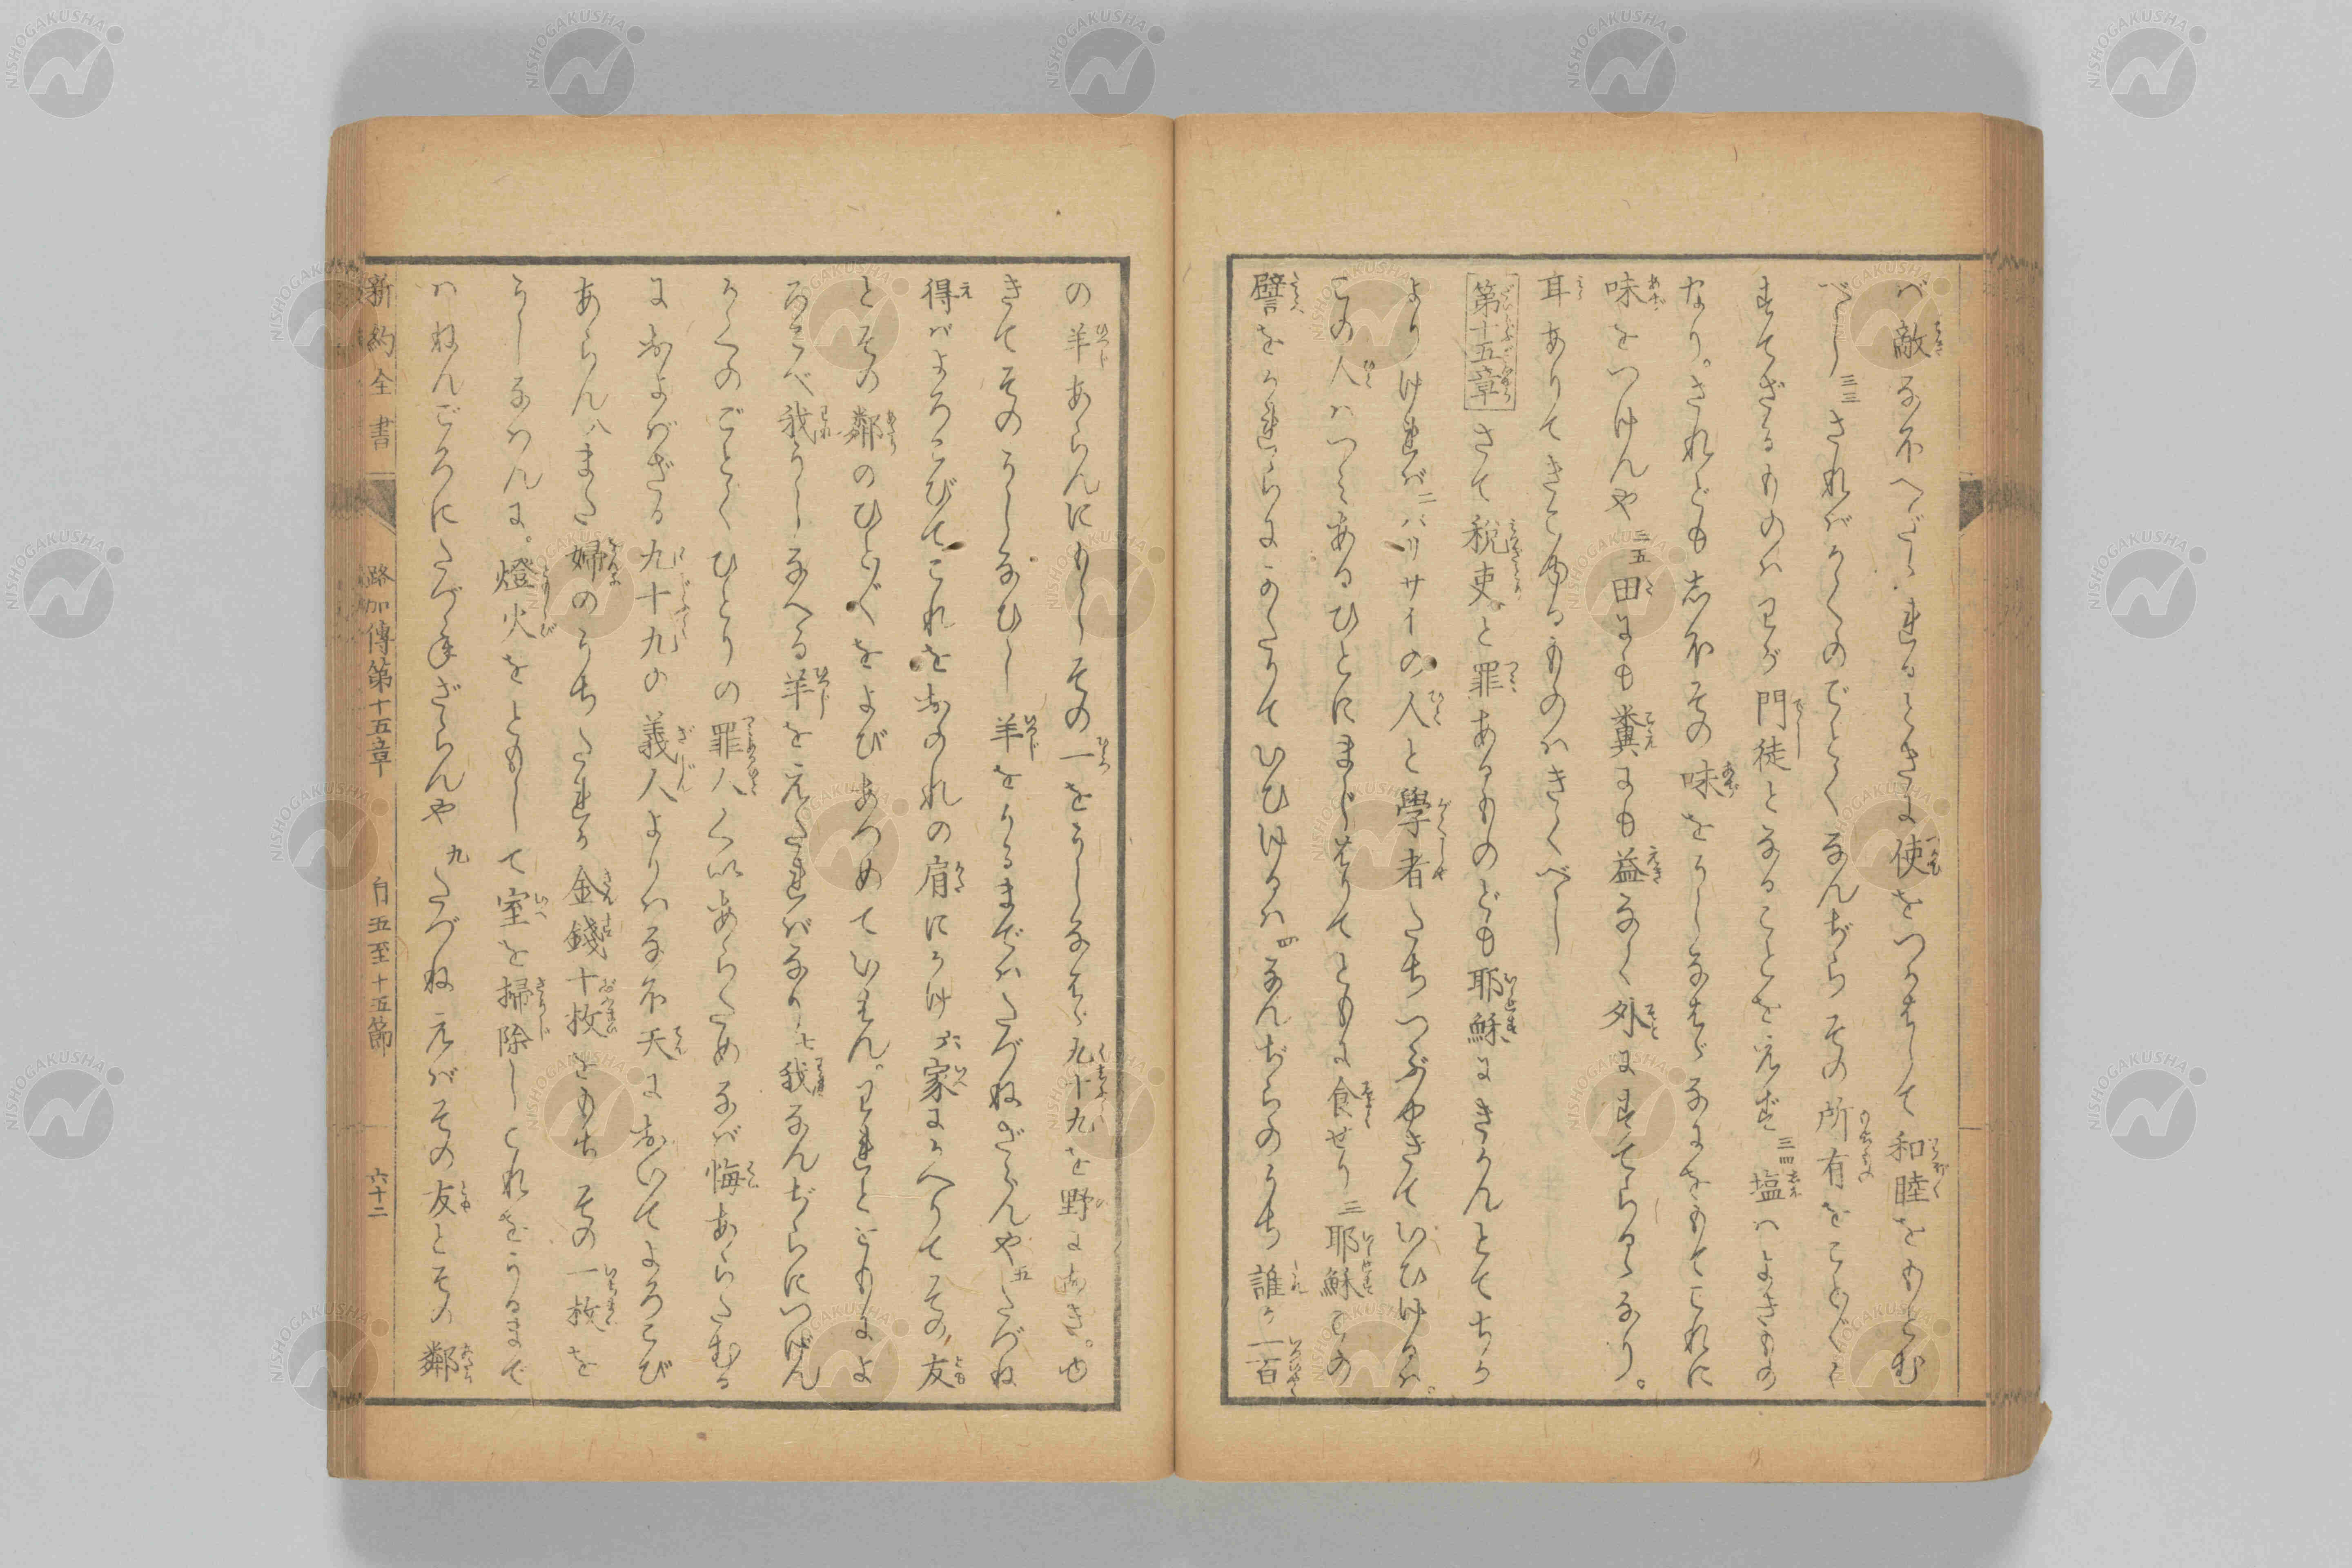 バ敵なほへだゝれるときに使をつかはして和睦をもとむ
べし三三されバかくのごとくなんぢらその所有をことごとく
すてざるものハわが門徒となることを得ず三四塩ハよきもの
なり。されどもしほその味をうしなはゞなにをもてこれに
味をつけんや三五田にも糞にも益なく外にすてらるゝなり。
耳ありてきこゆるものハきくべし
第十五章さて税吏と罪あるものども耶穌にきかんとてちか
よりければ二パリサイの人と學者たちつぶやきていひけるハ。
この人ハつみあるひとにまじはりてともに食せり三耶穌この
譬をかれらにかたりていひけるハ。四なんぢらのうち誰か一百
の羊あらんにもしその一をうしなはゞ九十九を野におき。ゆ
きてそのうしなひし羊をうるまでハたづねざらんや五たづね
得バよろこびてこれをおのれの肩にかけ六家にかへりてその友
とその鄰のひとびとをよびあつめていはん。われとともによ
ろこべ我うしなへる羊をえたればなり七我なんぢらにつげん
かくのごとくひとりの罪人くいあらためなバ悔あらたむる
におよバざる九十九の義人よりハなほ天においてよろこび
あらん八また婦のうちたれか金錢十枚をもちその一枚を
うしなハんに。燈火をともして室を掃除しこれをうるまで
ハねんごろにたづねざらんや九たづねえバその友とその鄰
新約全書 路加傳第十五章 自五至十五節 六十二
NISHOGAKUSHA